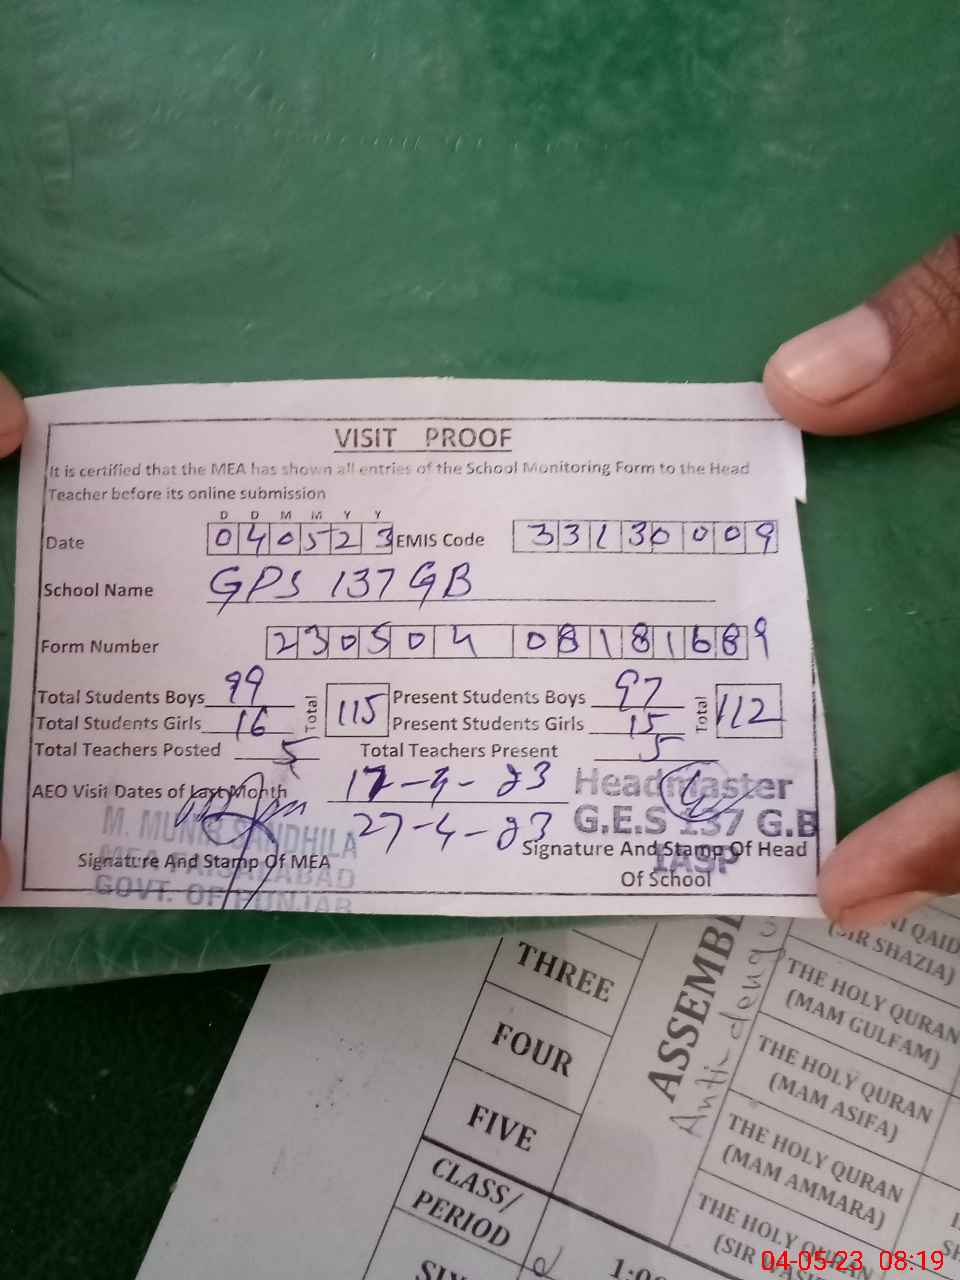 VISIT PROOF
It is certified that the MEA has shown all entries of the School Monitoring Form to the Head
Teacher before its online submission
D D M M Y Y
Date 040523 EMIS Code 33130009
School Name GPS 137 GB
Form Number 230504 08181689
Total Students Boys 99 Total 115 Present Students Boys 97 Total 112
Total Students Girls 16 Present Students Girls 15
Total Teachers Posted 5 Total Teachers Present 5
AEO Visit Dates of Last Month 17-4-23
27-4-23
Headmaster
G.E.S 137 G.B
M. MUNIR SANDHILA
MEA FAISALABAD
GOVT. OF PUNJAB
Signature And Stamp Of MEA
Signature And Stamp Of Head
Of School
THREE
FOUR
FIVE
CLASS/
PERIOD
Anti-dengue
QAID
(SIR SHAZIA)
THE HOLY QURAN
(MAM GULFAM)
THE HOLY QURAN
(MAM ASIFA)
THE HOLY QURAN
(MAM AMMARA)
THE HOLY QURAN
(SIR
04-05-23 08:19